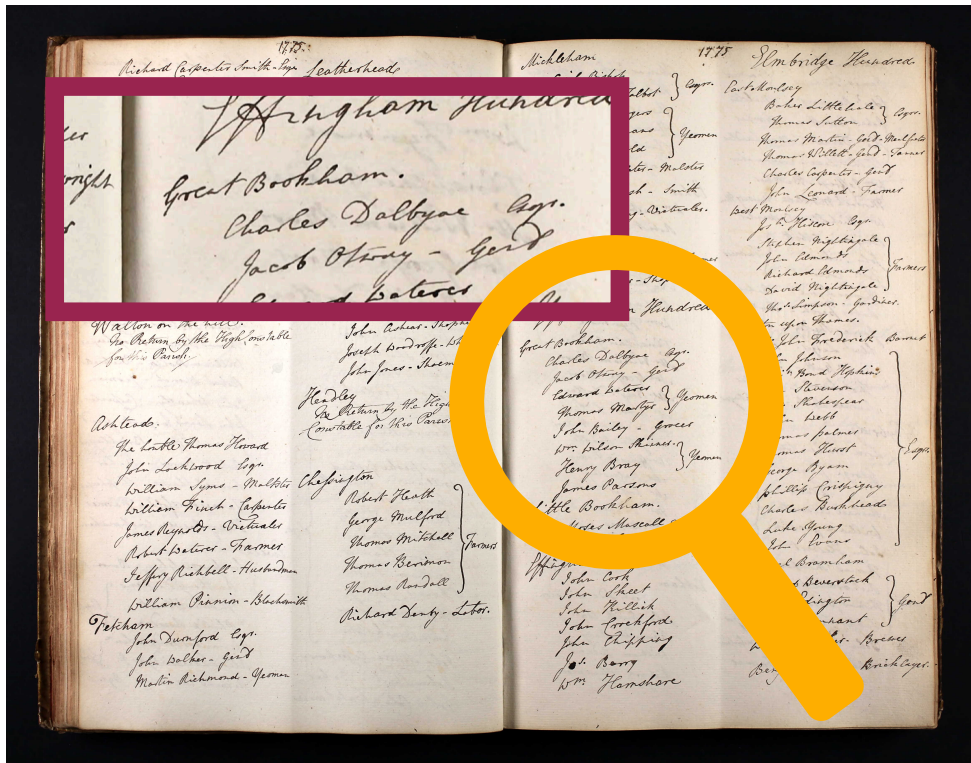 1775
Richard Carpenter Smith - Esqr. Leatherhead
Effingham Hundred
Great Bookham.
Charles Dalbyac Esqr.
Jacob Otway - Gent
Edward Waterer
wright
Walton on the hill.
No Return by the High Constable
for this Parish.
Ashtead.
The honble Thomas Howard
John Lockwood Esqr.
William Syms - Malster
William Finch - Carpenter
James Reynolds - Victualer
Robert Waterer - Farmer
Jeffery Richbell - Husbandman
William Pinnion - Blacksmith
Fetcham
John Durnford Esqr.
John Walker - Gent
Martin Richmond - Yeoman
Joseph Woodroffe
John Jones - Shoem
Headley
No Return by the High
Constable for this Paris
Chessington
Robert Heath
George Mulford
Thomas Mitchell
Thomas Berimon
Thomas Randall
Farmers
Richard Denby - Labor.
Mickleham
1775
Esqrs.
Yeomen
Malster
Smith
Victualer.
Hundred
Great Bookham.
Charles Dalbyac Esqr.
Jacob Otway - Gent
Edward Waterer
Thomas Martyr
Yeomen
John Bailey - Grocer
Wm. Wilson Skinner
Henry Bray
Yeomen
James Parsons
Little Bookham.
Moses Mascall
John Cook
John Street
John Hillick
John Crockford
John Chipping
Jas. Barry
Wm. Hamshare
Elmbridge Hundred
East Moulsey
Baker Littlehale
Thomas Sutton
Esqrs.
Thomas Martin - Gent
Thomas Willett - Gent - Farmer
Charles Carpenter - Gent
John Leonard - Farmer
West Moulsey
Jos. Hiscox Esqr.
Stephen Nightingale
John Edmonds
Richard Edmonds
David Nightingale
Farmers
Thos. Simpson - Gardiner.
upon Thames.
John Frederick Baronet
Johnson
Bond Hopkins
Stevenson
Shakespear
Webb
Palmer
Hurst
George Byam
Phillip Crispigny
Charles Buckheads
Luke Young
John Evans
Esqrs.
Bramham
Beverstock
Gent
Brewer
Bricklayer.